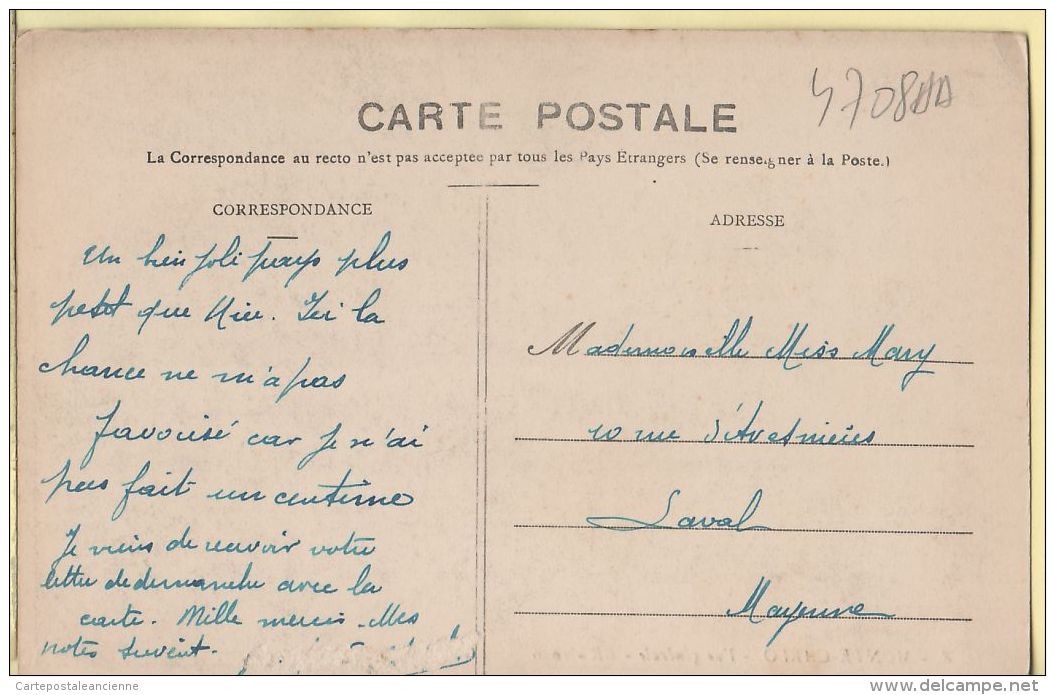 4708AA
CARTE POSTALE
La Correspondance au recto n'est pas acceptee par tous les Pays Étrangers (Se renseigner à la Poste.)
CORRESPONDANCE
Un bien joli pays plus
petit que Nice. Ici la
chance ne m'a pas
favorisé car je n'ai
pas fait un centime
Je viens de recevoir votre
lettre de dimanche avec la
carte. Mille mercis. Mes
notes suivent.
ADRESSE
Mademoiselle Miss Mary
10 rue d'Avesnières
Laval
Mayenne
MONTE-CARLO - Vue générale
Cartepostaleancienne
delcampe.net